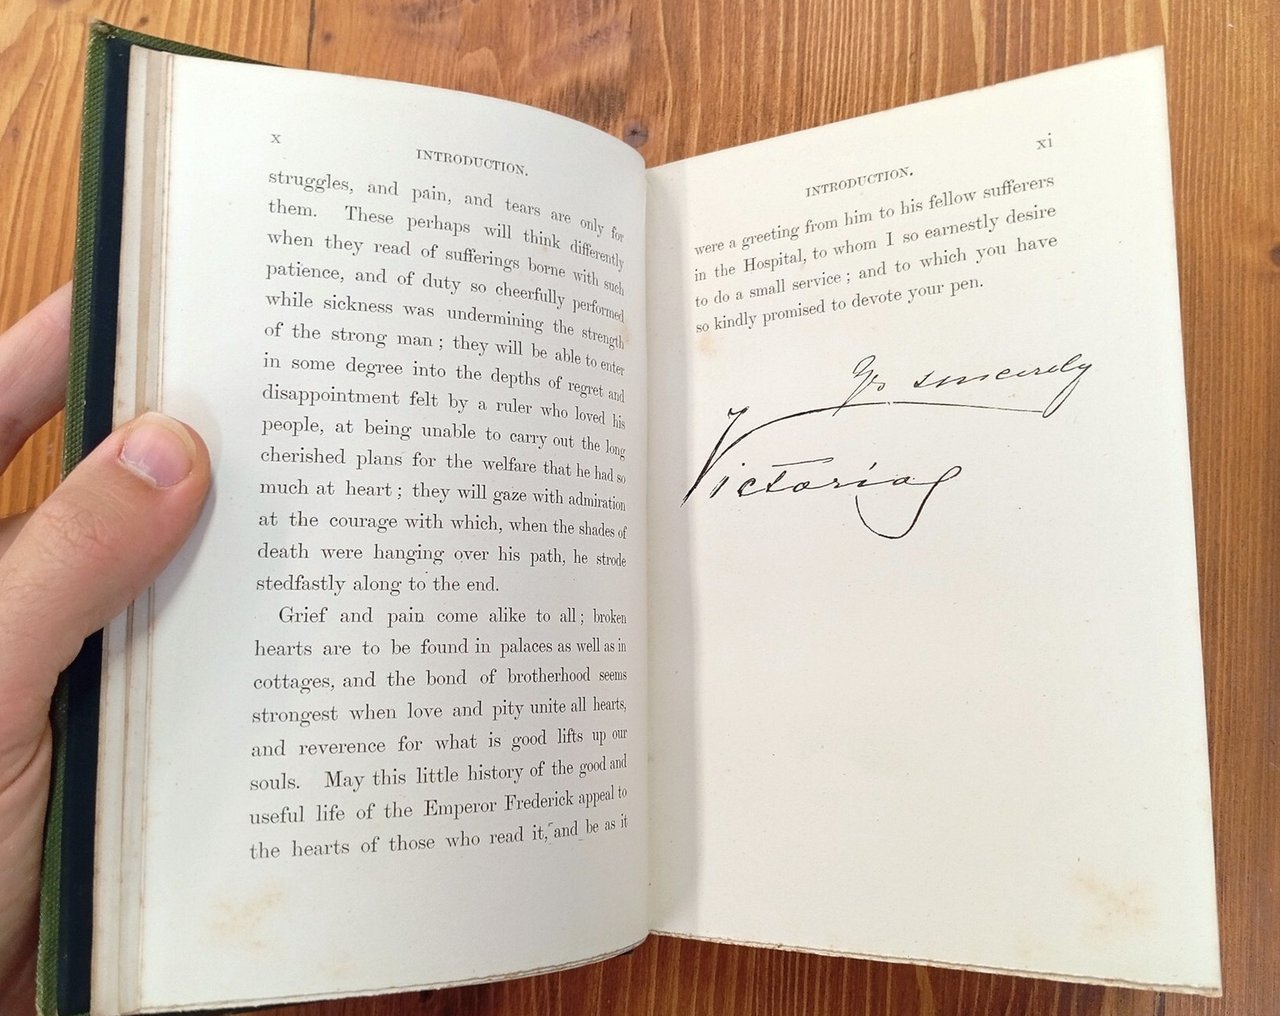 x
INTRODUCTION.
struggles, and pain, and tears are only for
them. These perhaps will think differently
when they read of sufferings borne with such
patience, and of duty so cheerfully performed
while sickness was undermining the strength
of the strong man ; they will be able to enter
in some degree into the depths of regret and
disappointment felt by a ruler who loved his
people, at being unable to carry out the long
cherished plans for the welfare that he had so
much at heart ; they will gaze with admiration
at the courage with which, when the shades of
death were hanging over his path, he strode
stedfastly along to the end.
Grief and pain come alike to all ; broken
hearts are to be found in palaces as well as in
cottages, and the bond of brotherhood seems
strongest when love and pity unite all hearts,
and reverence for what is good lifts up our
souls. May this little history of the good and
useful life of the Emperor Frederick appeal to
the hearts of those who read it, and be as it
xi
INTRODUCTION.
were a greeting from him to his fellow sufferers
in the Hospital, to whom I so earnestly desire
to do a small service ; and to which you have
so kindly promised to devote your pen.
Yrs sincerely
Victoria